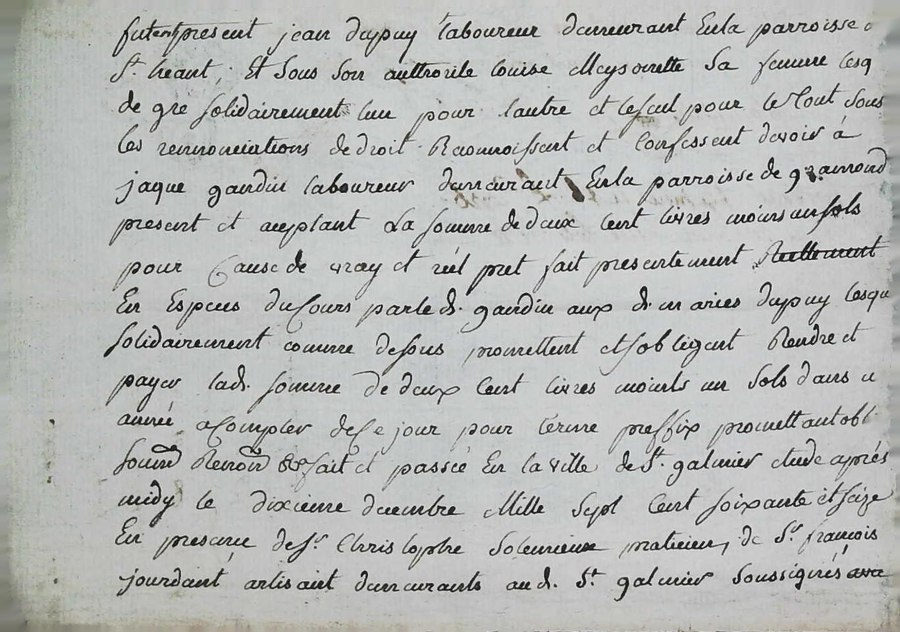 fut present jean dupuy laboureur demeurant En la parroisse
St. heant, Et sous son authorité louise Meysonette sa femme lesq
de gre solidairement lun pour lautre et le seul pour le Tout sous
les rennonciations de droit Reconnoissent et Confessent devoir à
jaque gandin laboureur demeurant En la parroisse de gramond
present et aceptant La somme de deux Cent livres moins un sols
pour Cause de vray et réel pret fait presentement Reellement
En Espèces du Cours par le d. gandin aux d. maries dupuy lesqu
solidairement comme dessus promettent et sobligent Rendre et
payer lad. somme De deux Cent livres moints un sols dans u
année a Compter de Ce jour pour terme preffix promettant obl
soumd Renond fait et passé En la ville de St. galmier etude après
midy le dixieme decembre Mille sept Cent soixante et seize
En presence de sr. Christophe praticien, de Sr. françois
jourdant artisant demeurants aud. St. galmier soussignés